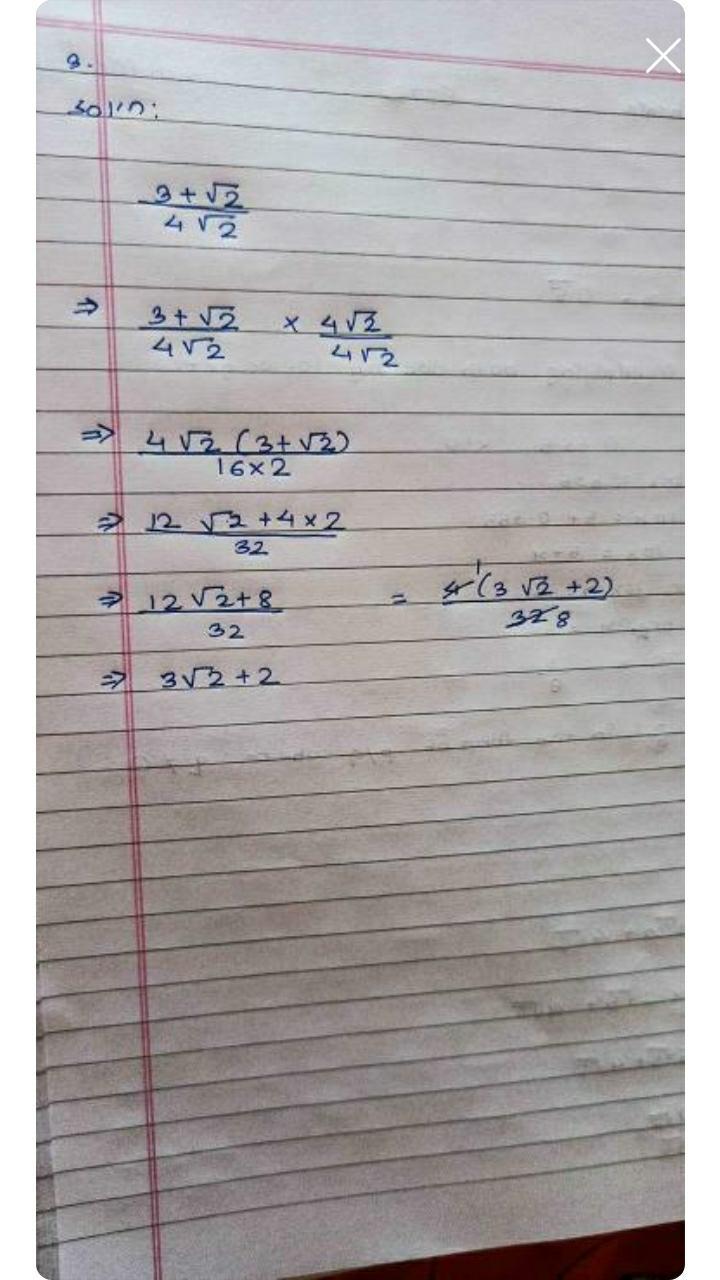 8.
Soln:
3 + √2 / 4 √2
⇒ 3 + √2 / 4 √2 × 4 √2 / 4 √2
⇒ 4 √2 (3 + √2) / 16 × 2
⇒ 12 √2 + 4 × 2 / 32
⇒ 12 √2 + 8 / 32 = 4 1 (3 √2 + 2) / 32 8
⇒ 3 √2 + 2